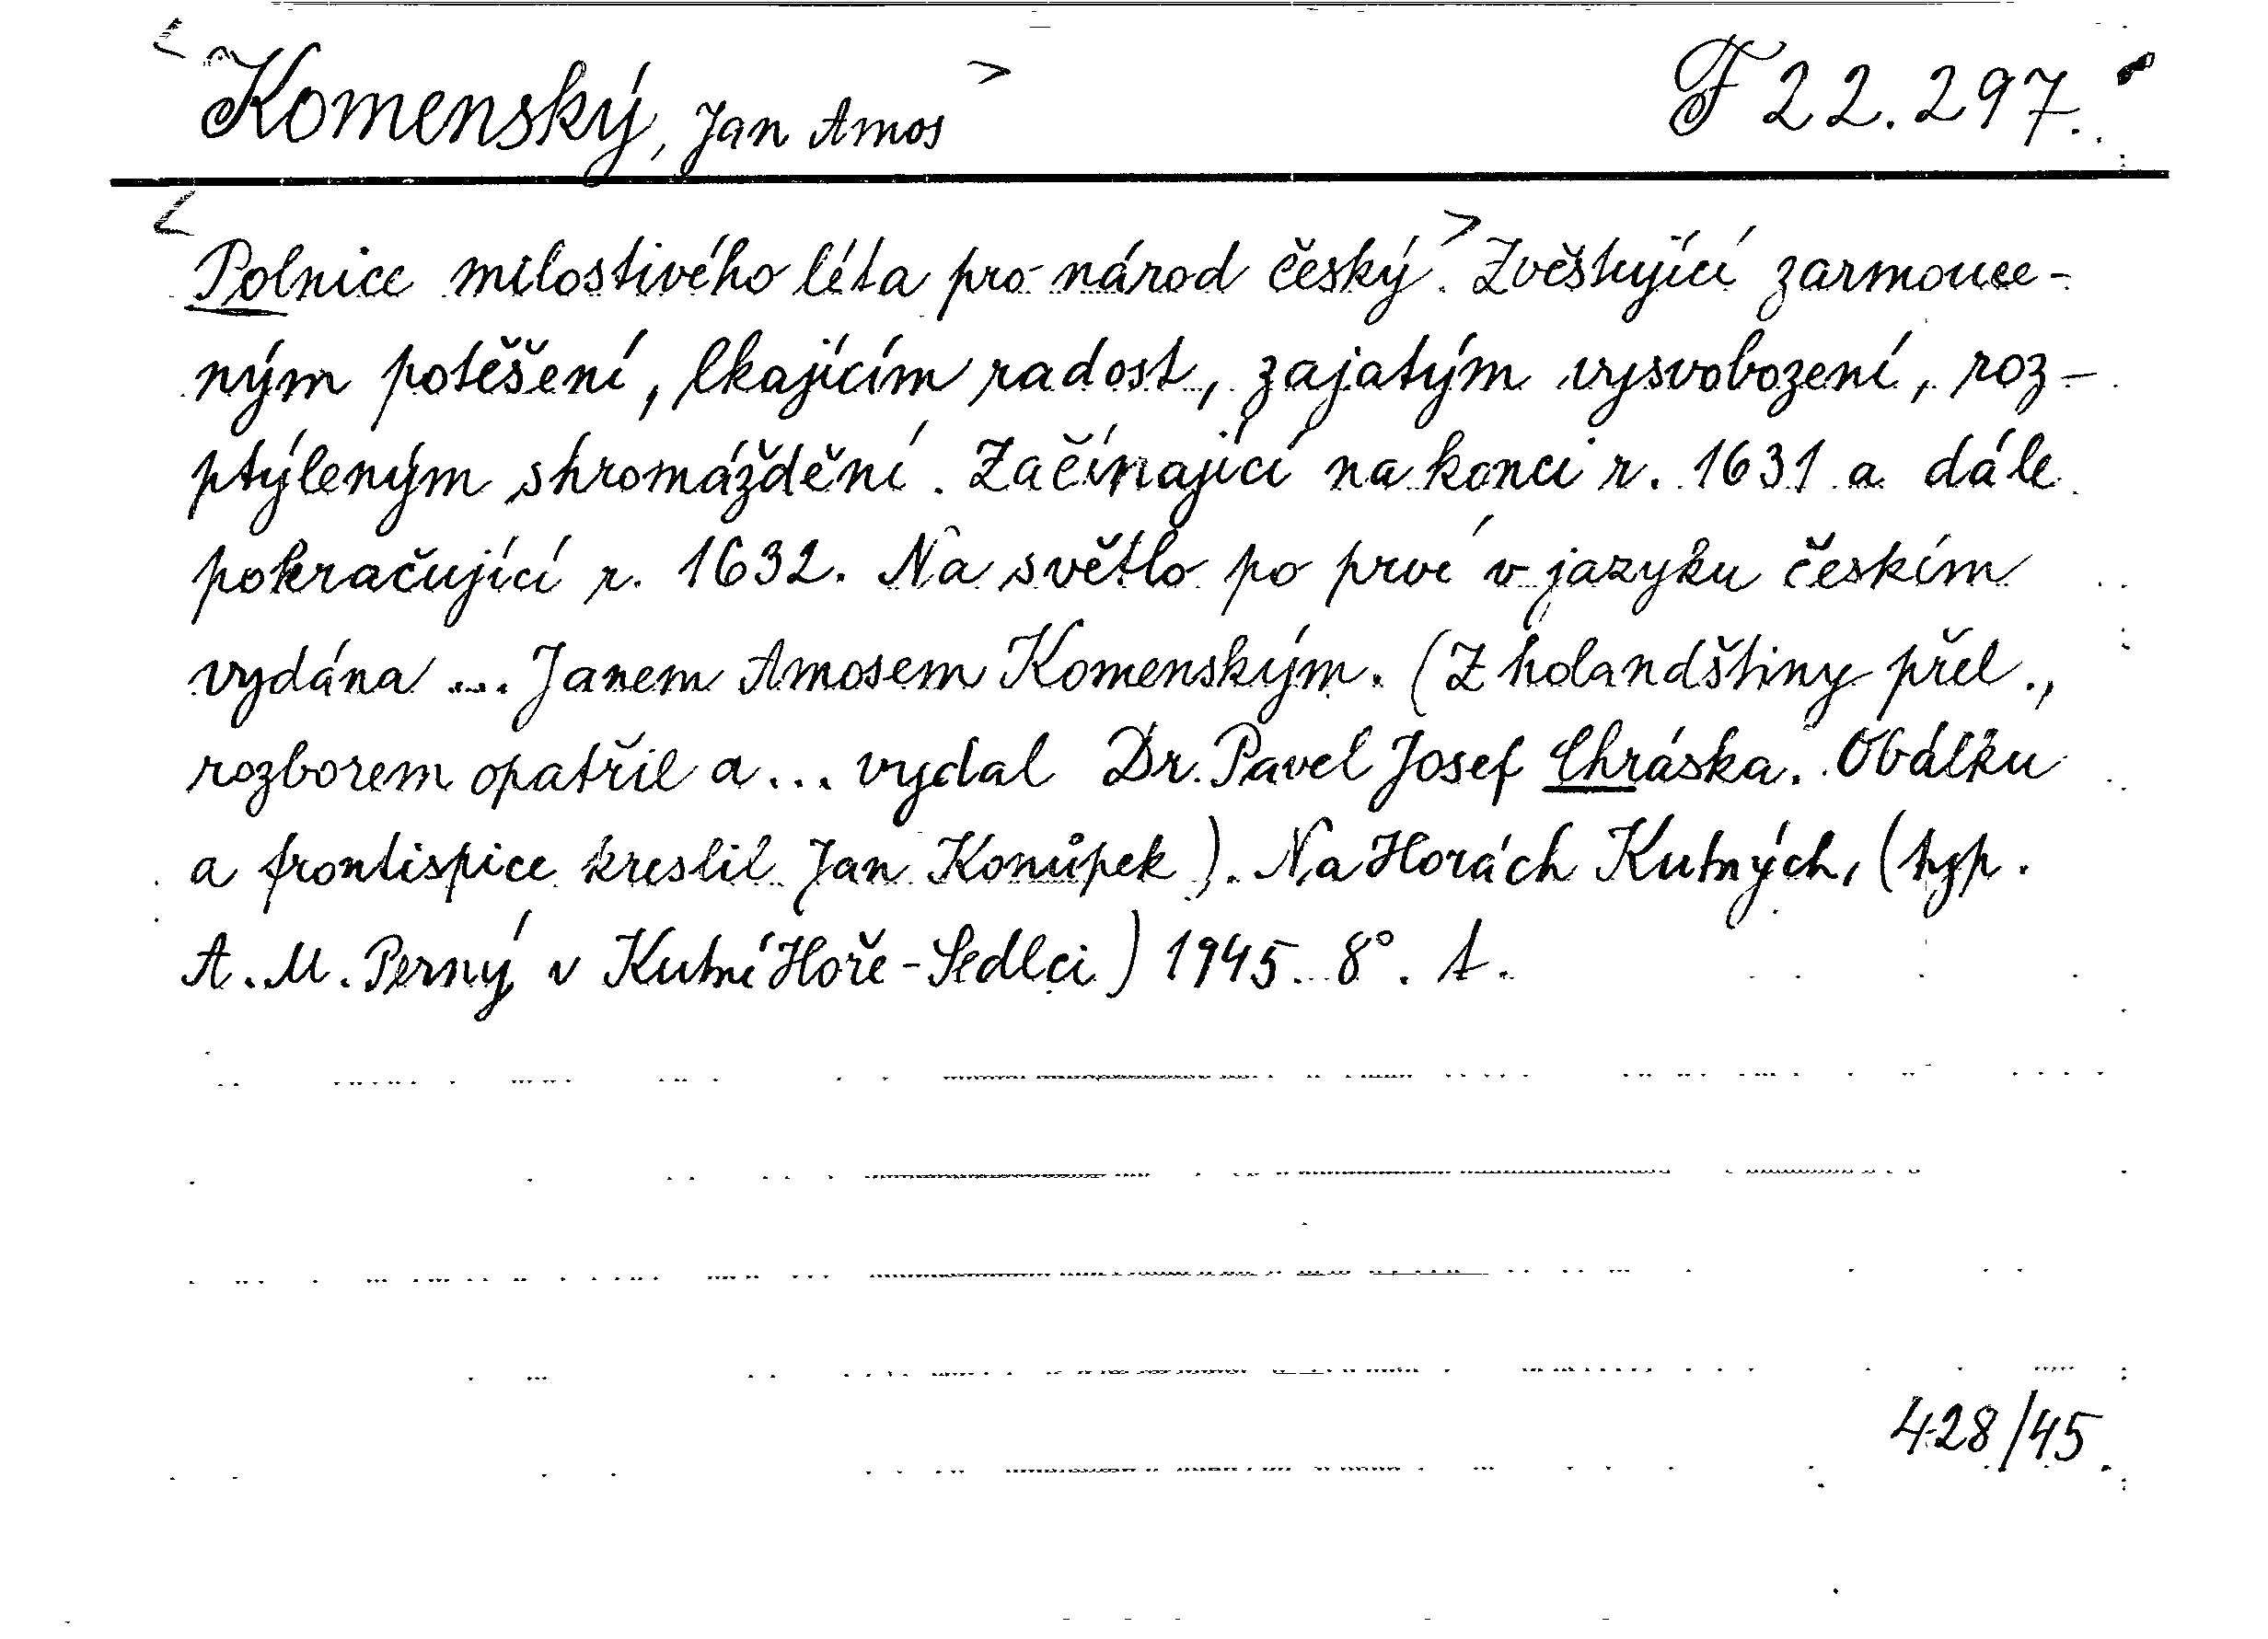 <Komenský, Jan Amos> F 22.297.
<Polnice milostivého léta pro národ český.> Zvěstující zarmouce-
ným potěšení, lkajícím radost, zajatým vysvobození, roz-
ptýleným shromáždění. Začínající na konci r. 1631 a dále
pokračující r. 1632. Na světlo po prvé v jazyku českém
vydána .... Janem Amosem Komenským. (Z holandštiny přel.,
rozborem opatřil a... vydal Dr. Pavel Josef Chráska. Obálku
a frontispice kreslil Jan Konůpek). Na Horách Kutných, (typ.
A. M. Perný v Kutné Hoře-Sedlci) 1945. 8°. t.
428/45.